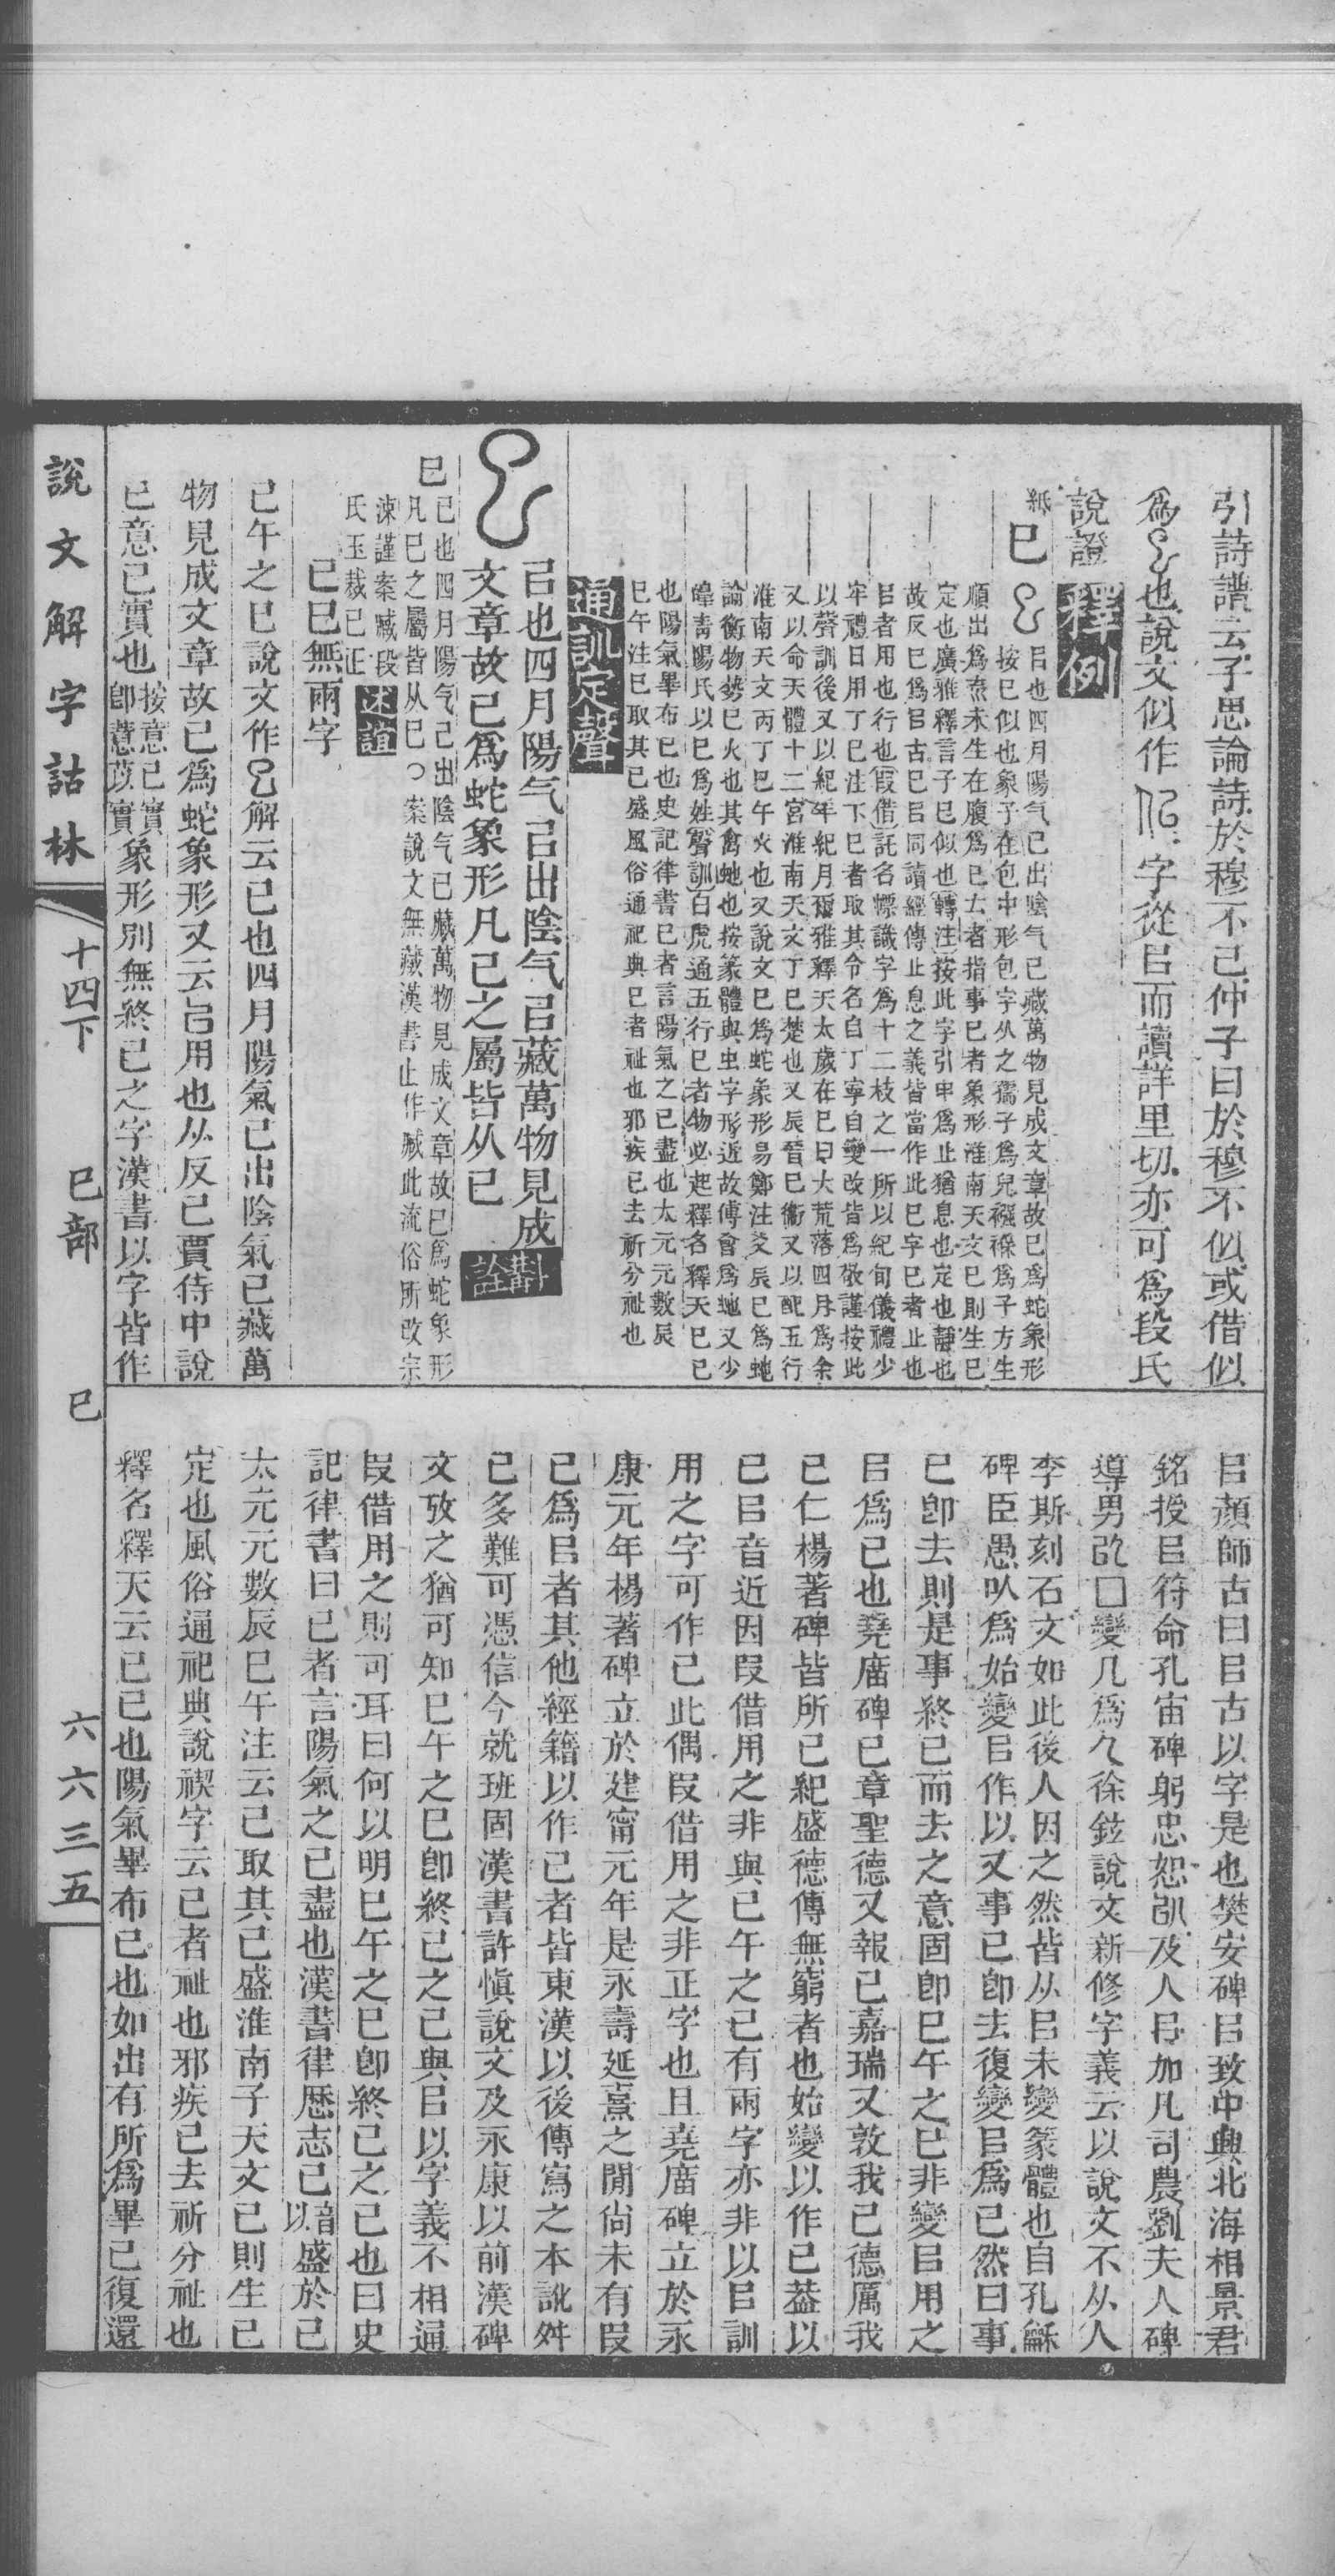 引詩譜云子思論詩於穆不已仲子曰於穆不似或借似
爲也說文似作字從㠯而讀詳里切亦可爲段氏
說證 釋例
紙 巳
㠯也四月陽气已出陰气已藏萬物見成文章故已爲蛇象形
按巳似也象子在包中形包字从之孺子爲兒襁褓爲子方生
順出爲㐬未生在腹爲巳𠫓者指事巳者象形淮南天文巳則生已
定也廣雅釋言子巳似也轉注按此字引申爲止猶息也定也靜也
故反巳爲㠯古巳㠯同讀經傳止息之義皆當作此巳字巳者止也
㠯者用也行也叚借託名幖識字爲十二枝之一所以紀旬儀禮少
牢禮日用丁巳注下巳者取其令名自丁寧自變改皆爲敬謹按此
以聲訓後又以紀年紀月爾雅釋天太歲在巳曰大荒落四月爲余
又以命天體十二宮淮南天文丁巳楚也又辰晉巳衞又以配五行
淮南天文丙丁巳午火也又說文巳爲蛇象形易鄭注爻辰巳爲虵
論衡物勢巳火也其禽虵也按篆體與虫字形近故傅會爲虵又少
皞靑陽氏以巳爲姓聲訓白虎通五行巳者物必起釋名釋天巳已
也陽氣畢布已也史記律書巳者言陽氣之已盡也太元元數辰
巳午注巳取其已盛風俗通祀典巳者祉也邪疾已去祈介祉也
通訓定聲
㠯也四月陽气㠯出陰气㠯藏萬物見成
文章故巳爲蛇象形凡巳之屬皆从巳 斠詮
巳 已也四月陽气已出陰气已藏萬物見成文章故巳爲蛇象形
凡巳之屬皆从巳○案說文無藏漢書止作臧此流俗所改宗
涑謹案臧段
氏玉裁已正 述誼
已巳無兩字
巳午之巳說文作解云已也四月陽氣已出陰氣已藏萬
物見成文章故巳爲蛇象形又云㠯用也从反巳賈侍中說
已意已實也 按意已實
卽薏苡實 象形別無終已之字漢書以字皆作
㠯顏師古曰㠯古以字是也樊安碑㠯致中興北海相景君
銘授㠯符命孔宙碑躬忠恕㠯及人㠯加凡司農劉夫人碑
導男㠯□變几爲乆徐鉉說文新修字義云以說文不从人
李斯刻石文如此後人因之然皆从㠯未變篆體也自孔龢
碑臣愚㕥爲始變㠯作以又事已卽去復變㠯爲已然曰事
已卽去則是事終已而去之意固卽巳午之巳非變㠯用之
㠯爲已也堯廟碑已章聖德又報已嘉瑞又敦我已德厲我
已仁楊著碑皆所已紀盛德傳無窮者也始變以作已葢以
已㠯音近因叚借用之非與巳午之巳有兩字亦非以㠯訓
用之字可作已此偶叚借用之非正字也且堯廟碑立於永
康元年楊著碑立於建甯元年是永壽延熹之閒尙未有叚
已爲㠯者其他經籍以作已者皆東漢以後傳寫之本訛舛
已多難可憑信今就班固漢書許愼說文及永康以前漢碑
文攷之猶可知巳午之巳卽終已之已與㠯以字義不相通
叚借用之則可耳曰何以明巳午之巳卽終已之已也曰史
記律書曰巳者言陽氣之已盡也漢書律歷志已 音以 盛於巳
太元元數辰巳午注云已取其已盛淮南子天文巳則生已
定也風俗通祀典說禊字云已者祉也邪疾已去祈介祉也
釋名釋天云巳已也陽氣畢布已也如出有所爲畢已復還
說文解字詁林 十四下 巳部 巳 六六三五